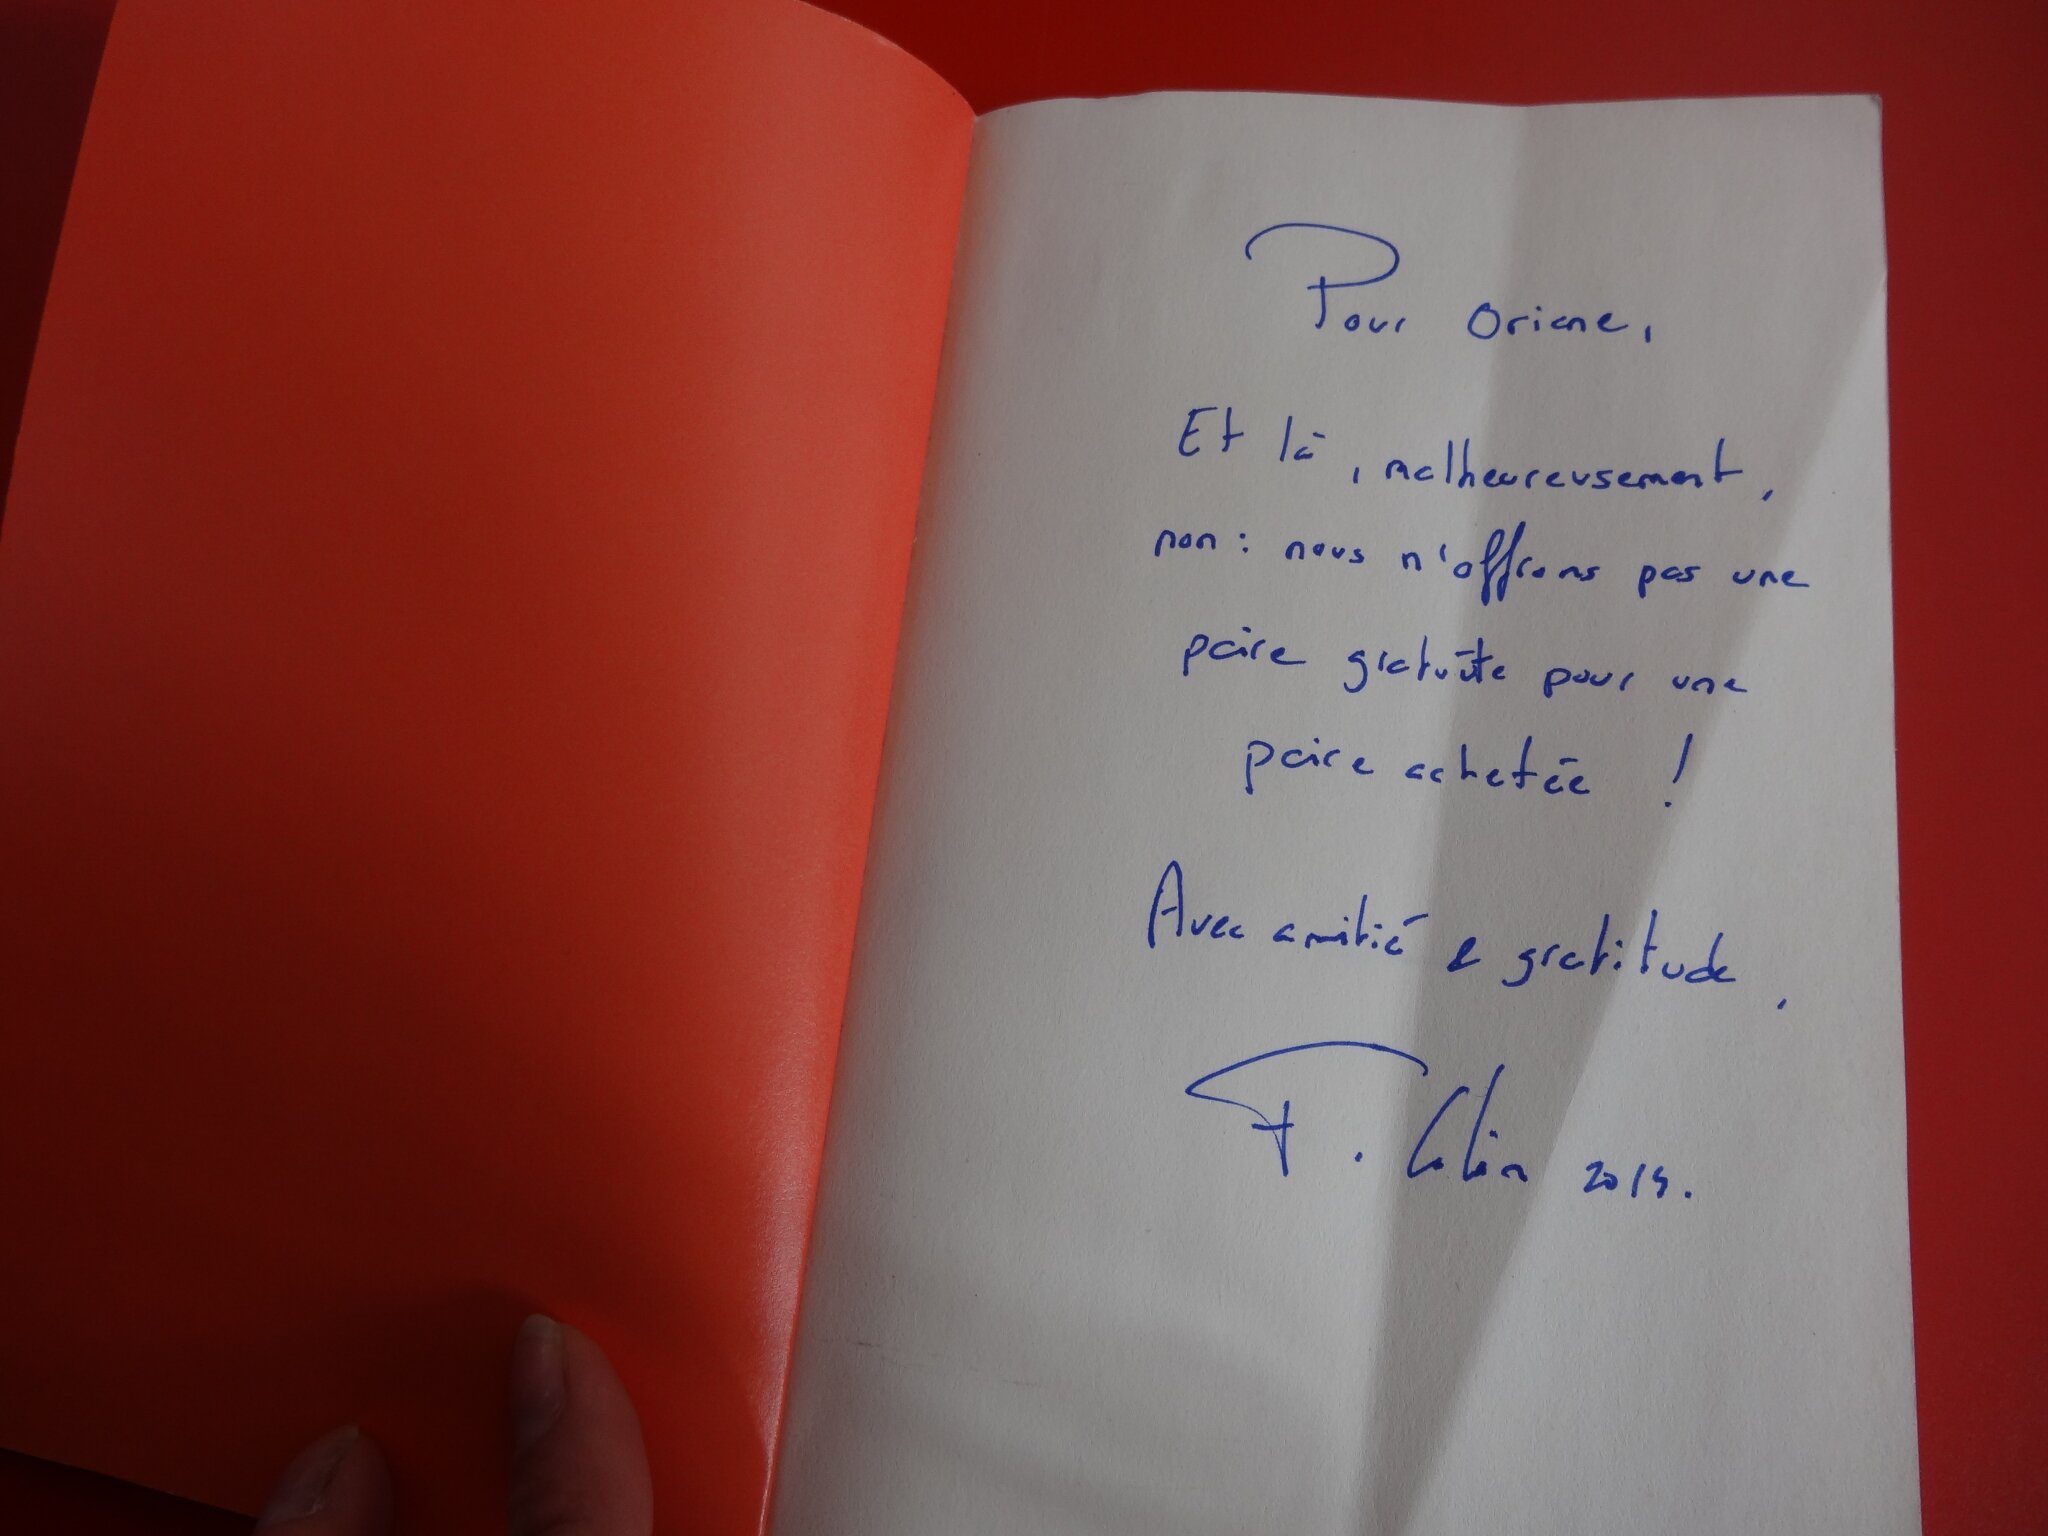 Pour Oriane,
Et là, malheureusement,
non : nous n'offrons pas une
paire gratuite pour une
paire achetée !
Avec amitié & gratitude,
F. Colin 2014.